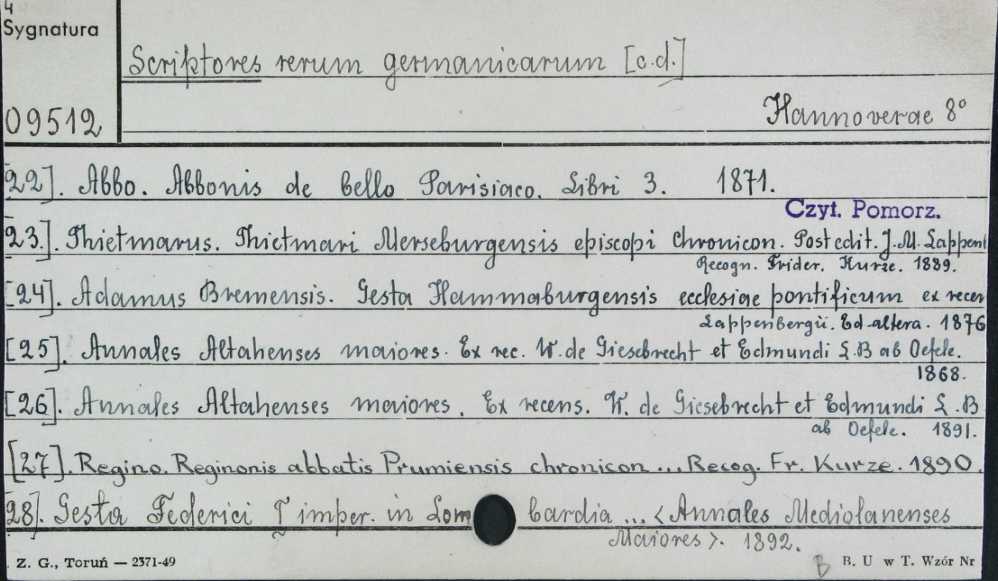 4
Sygnatura
Scriptores rerum germanicarum [c.d.]
09512
Hannoverae 8°
[22]. Abbo. Abbonis de bello Parisiaco. Libri 3. 1871.
Czyt. Pomorz.
[23.]. Thietmarus. Thietmari Merseburgensis episcopi chronicon. Post edit. J. M. Lappen
Recogn. Frider. Kurze. 1889.
[24]. Adamus Bremensis. Gesta Hammaburgensis ecclesiae pontificum ex recen
Lappenbergii. Ed altera. 1876
[25]. Annales Altahenses maiores. Ex rec. W. de Giesebrecht et Edmundi L.B ab Oefele.
1868.
[26]. Annales Altahenses maiores. Ex recens. W. de Giesebrecht et Edmundi L.B
ab Oefele. 1891.
[27]. Regino. Reginonis abbatis Prumiensis chronicon ... Recog. Fr. Kurze. 1890.
28]. Gesta Federici I imper. in Lombardia ... <Annales Mediolanenses
Maiores>. 1892.
Z. G., Toruń — 2371-49
B B. U w T. Wzór Nr